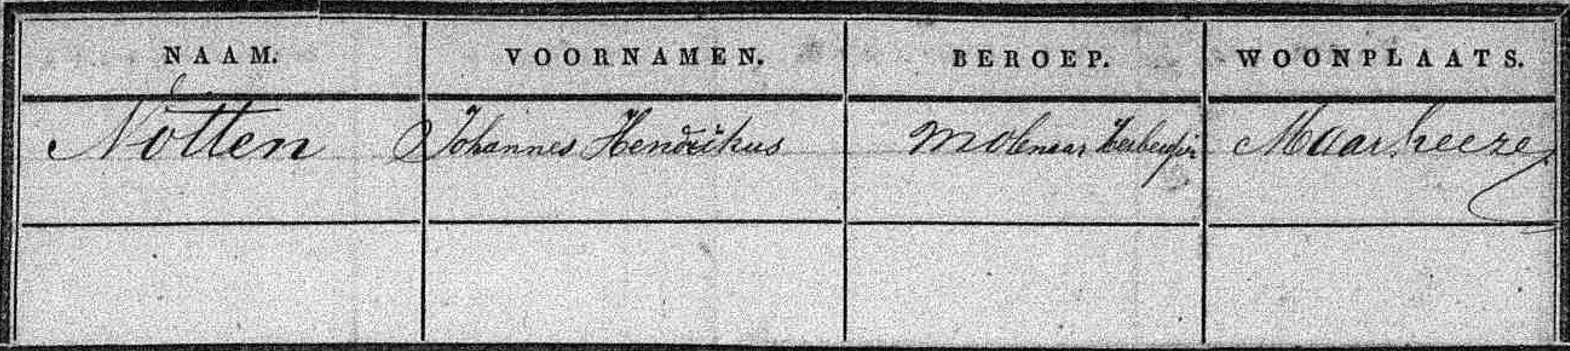 NAAM. VOORNAMEN. BEROEP. WOONPLAATS.
Notten Johannes Hendrikus Molenaar Herbergier Maarheeze